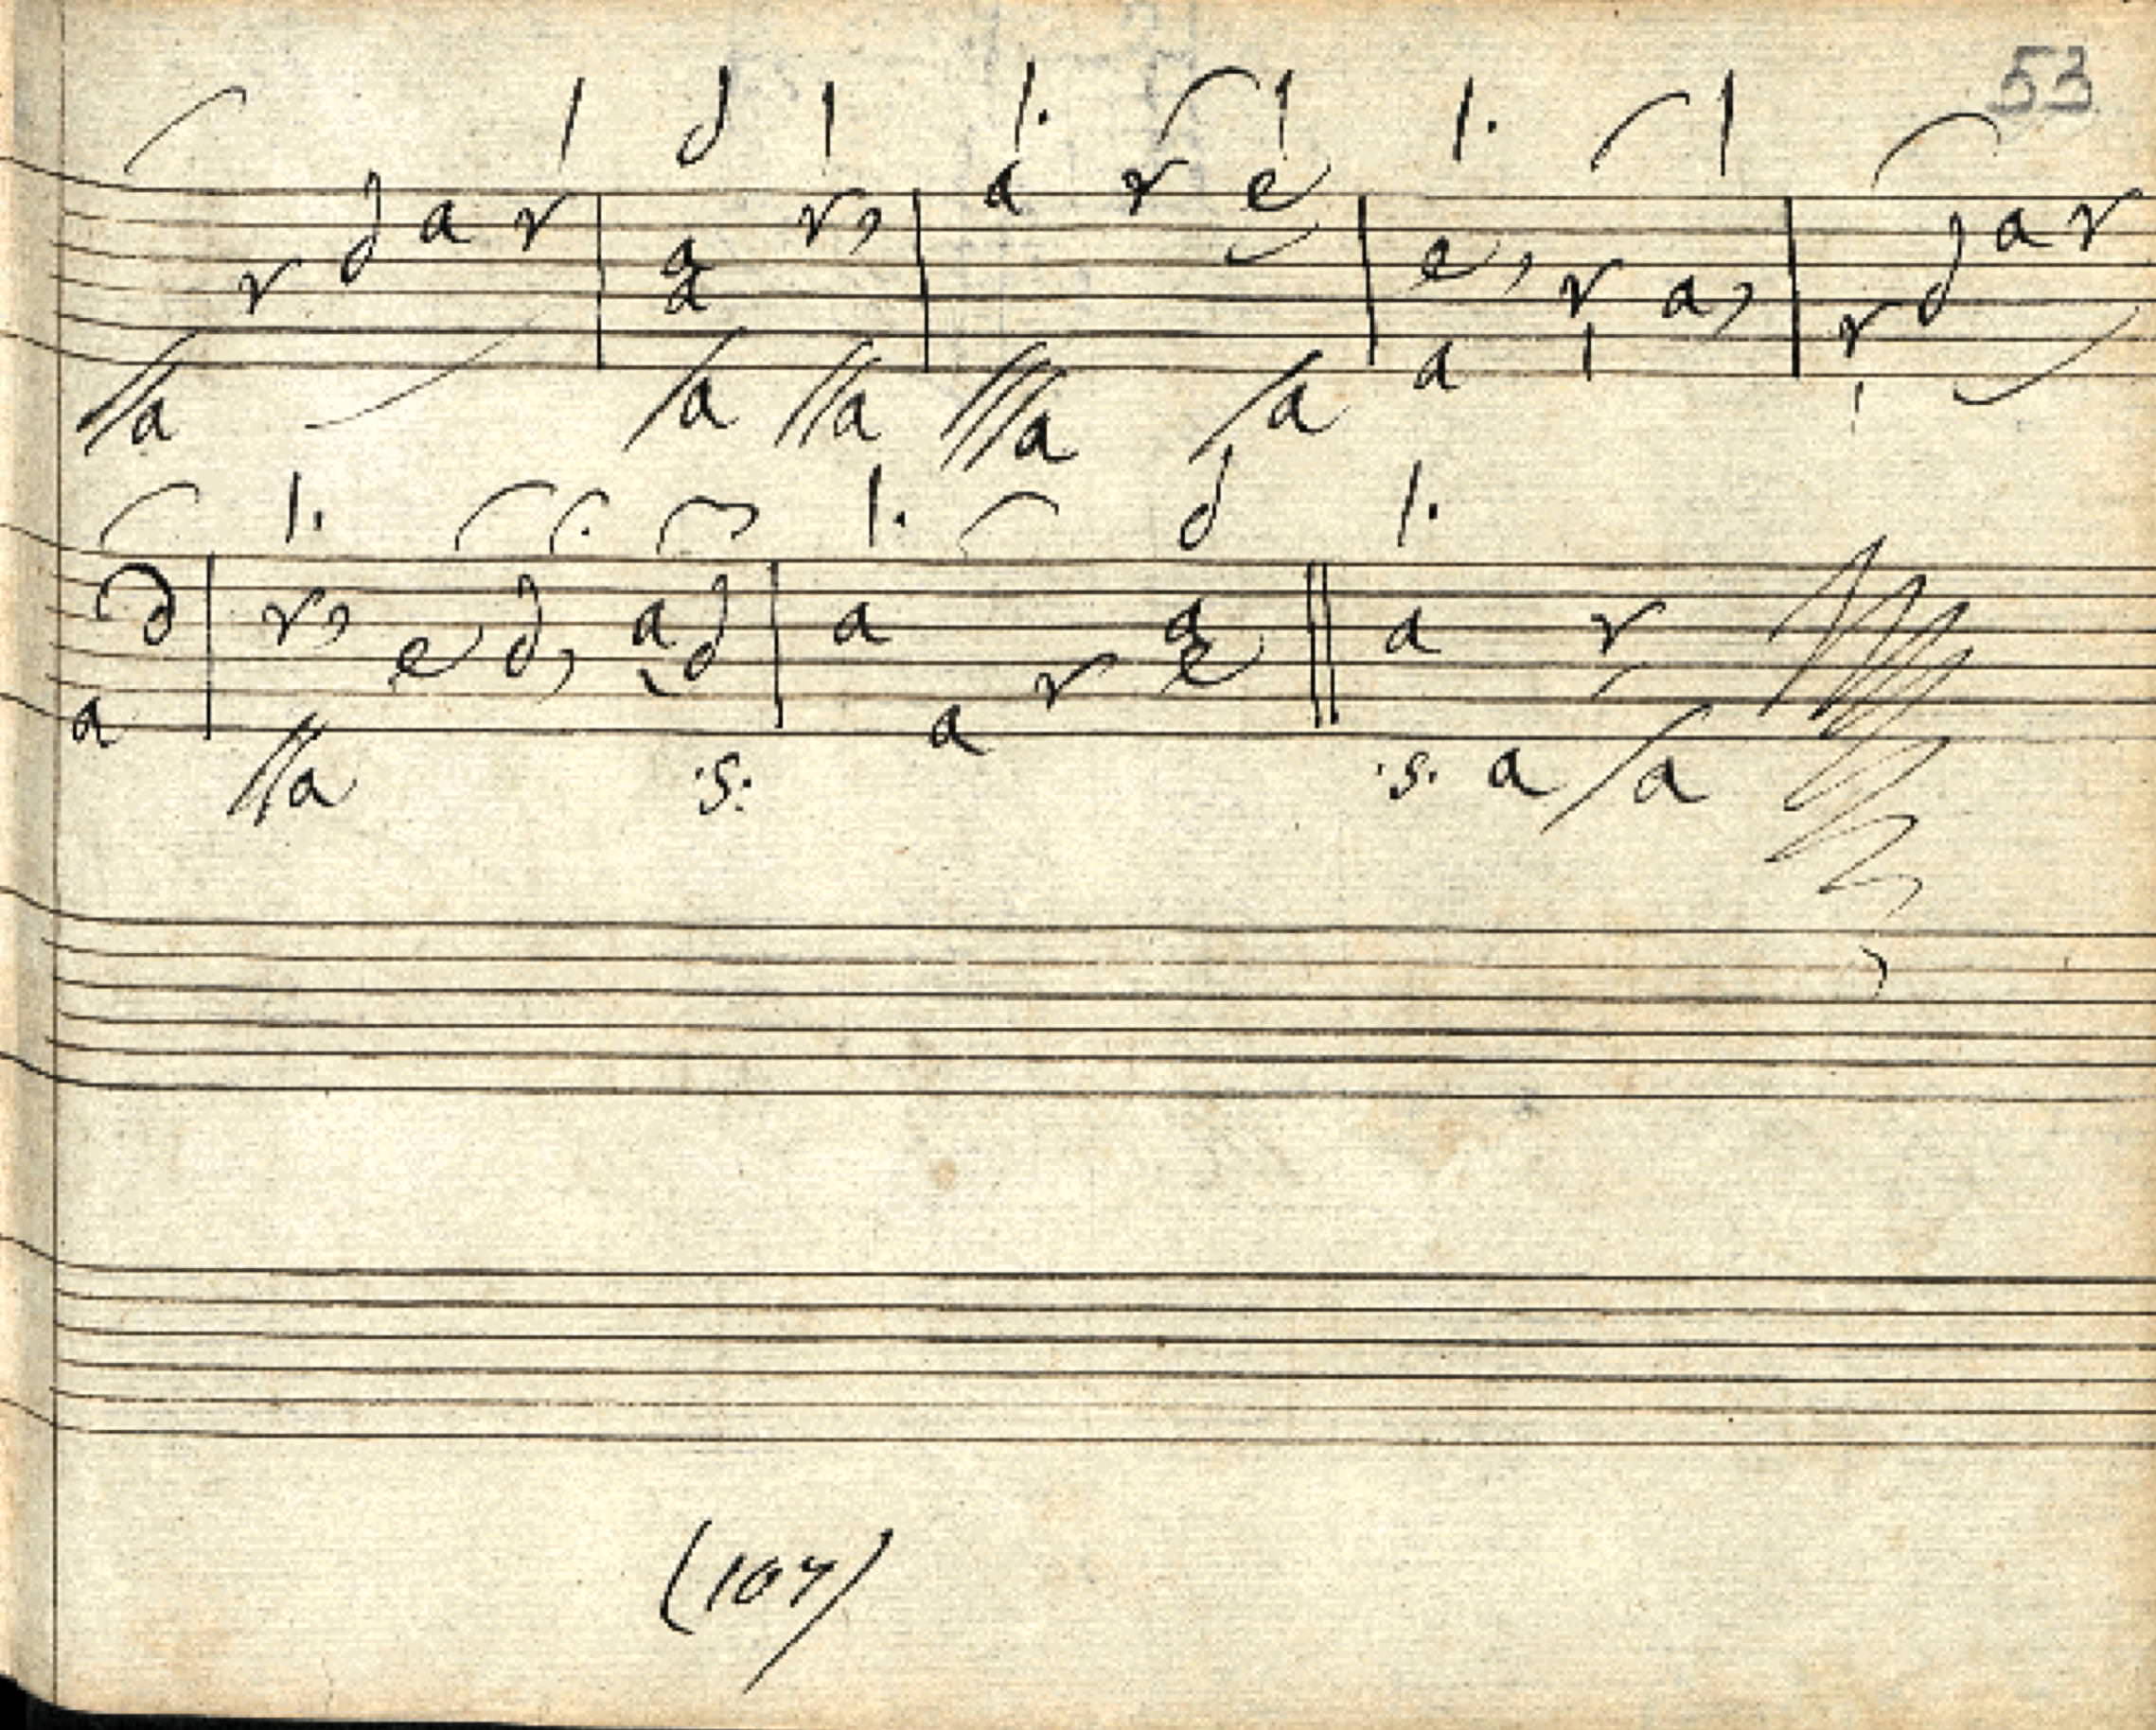 53
r d a r | a r, | a r e | e, r a, | r d a r
a a
//a /a //a ///a /a a
d | r, e d, a d | a r a || a r
a a e
//a .s. .s. a /a
(107)